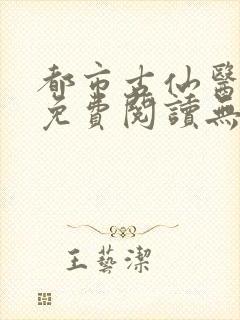 都市古仙醫
免費閱讀無
王藝潔